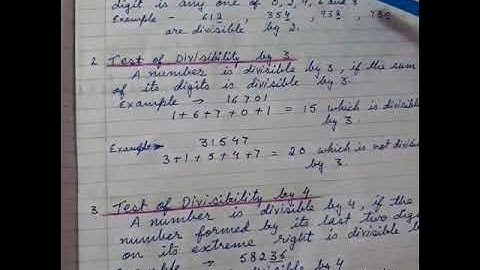 digit is any one of 0, 2, 4, 6 and 8
Example - 612, 354, 932, 730
are divisible by 2.
2. Test of Divisibility by 3
A number is divisible by 3, if the sum
of its digits is divisible by 3.
Example → 16701
1+6+7+0+1 = 15 which is divisible
by 3.
Example → 31547
3+1+5+4+7 = 20 which is not divisi
by 3.
3 Test of Divisibility by 4
A number is divisible by 4, if the
number formed by its last two dig
on its extreme right is divisible b
→ 58236
is divisible by 4